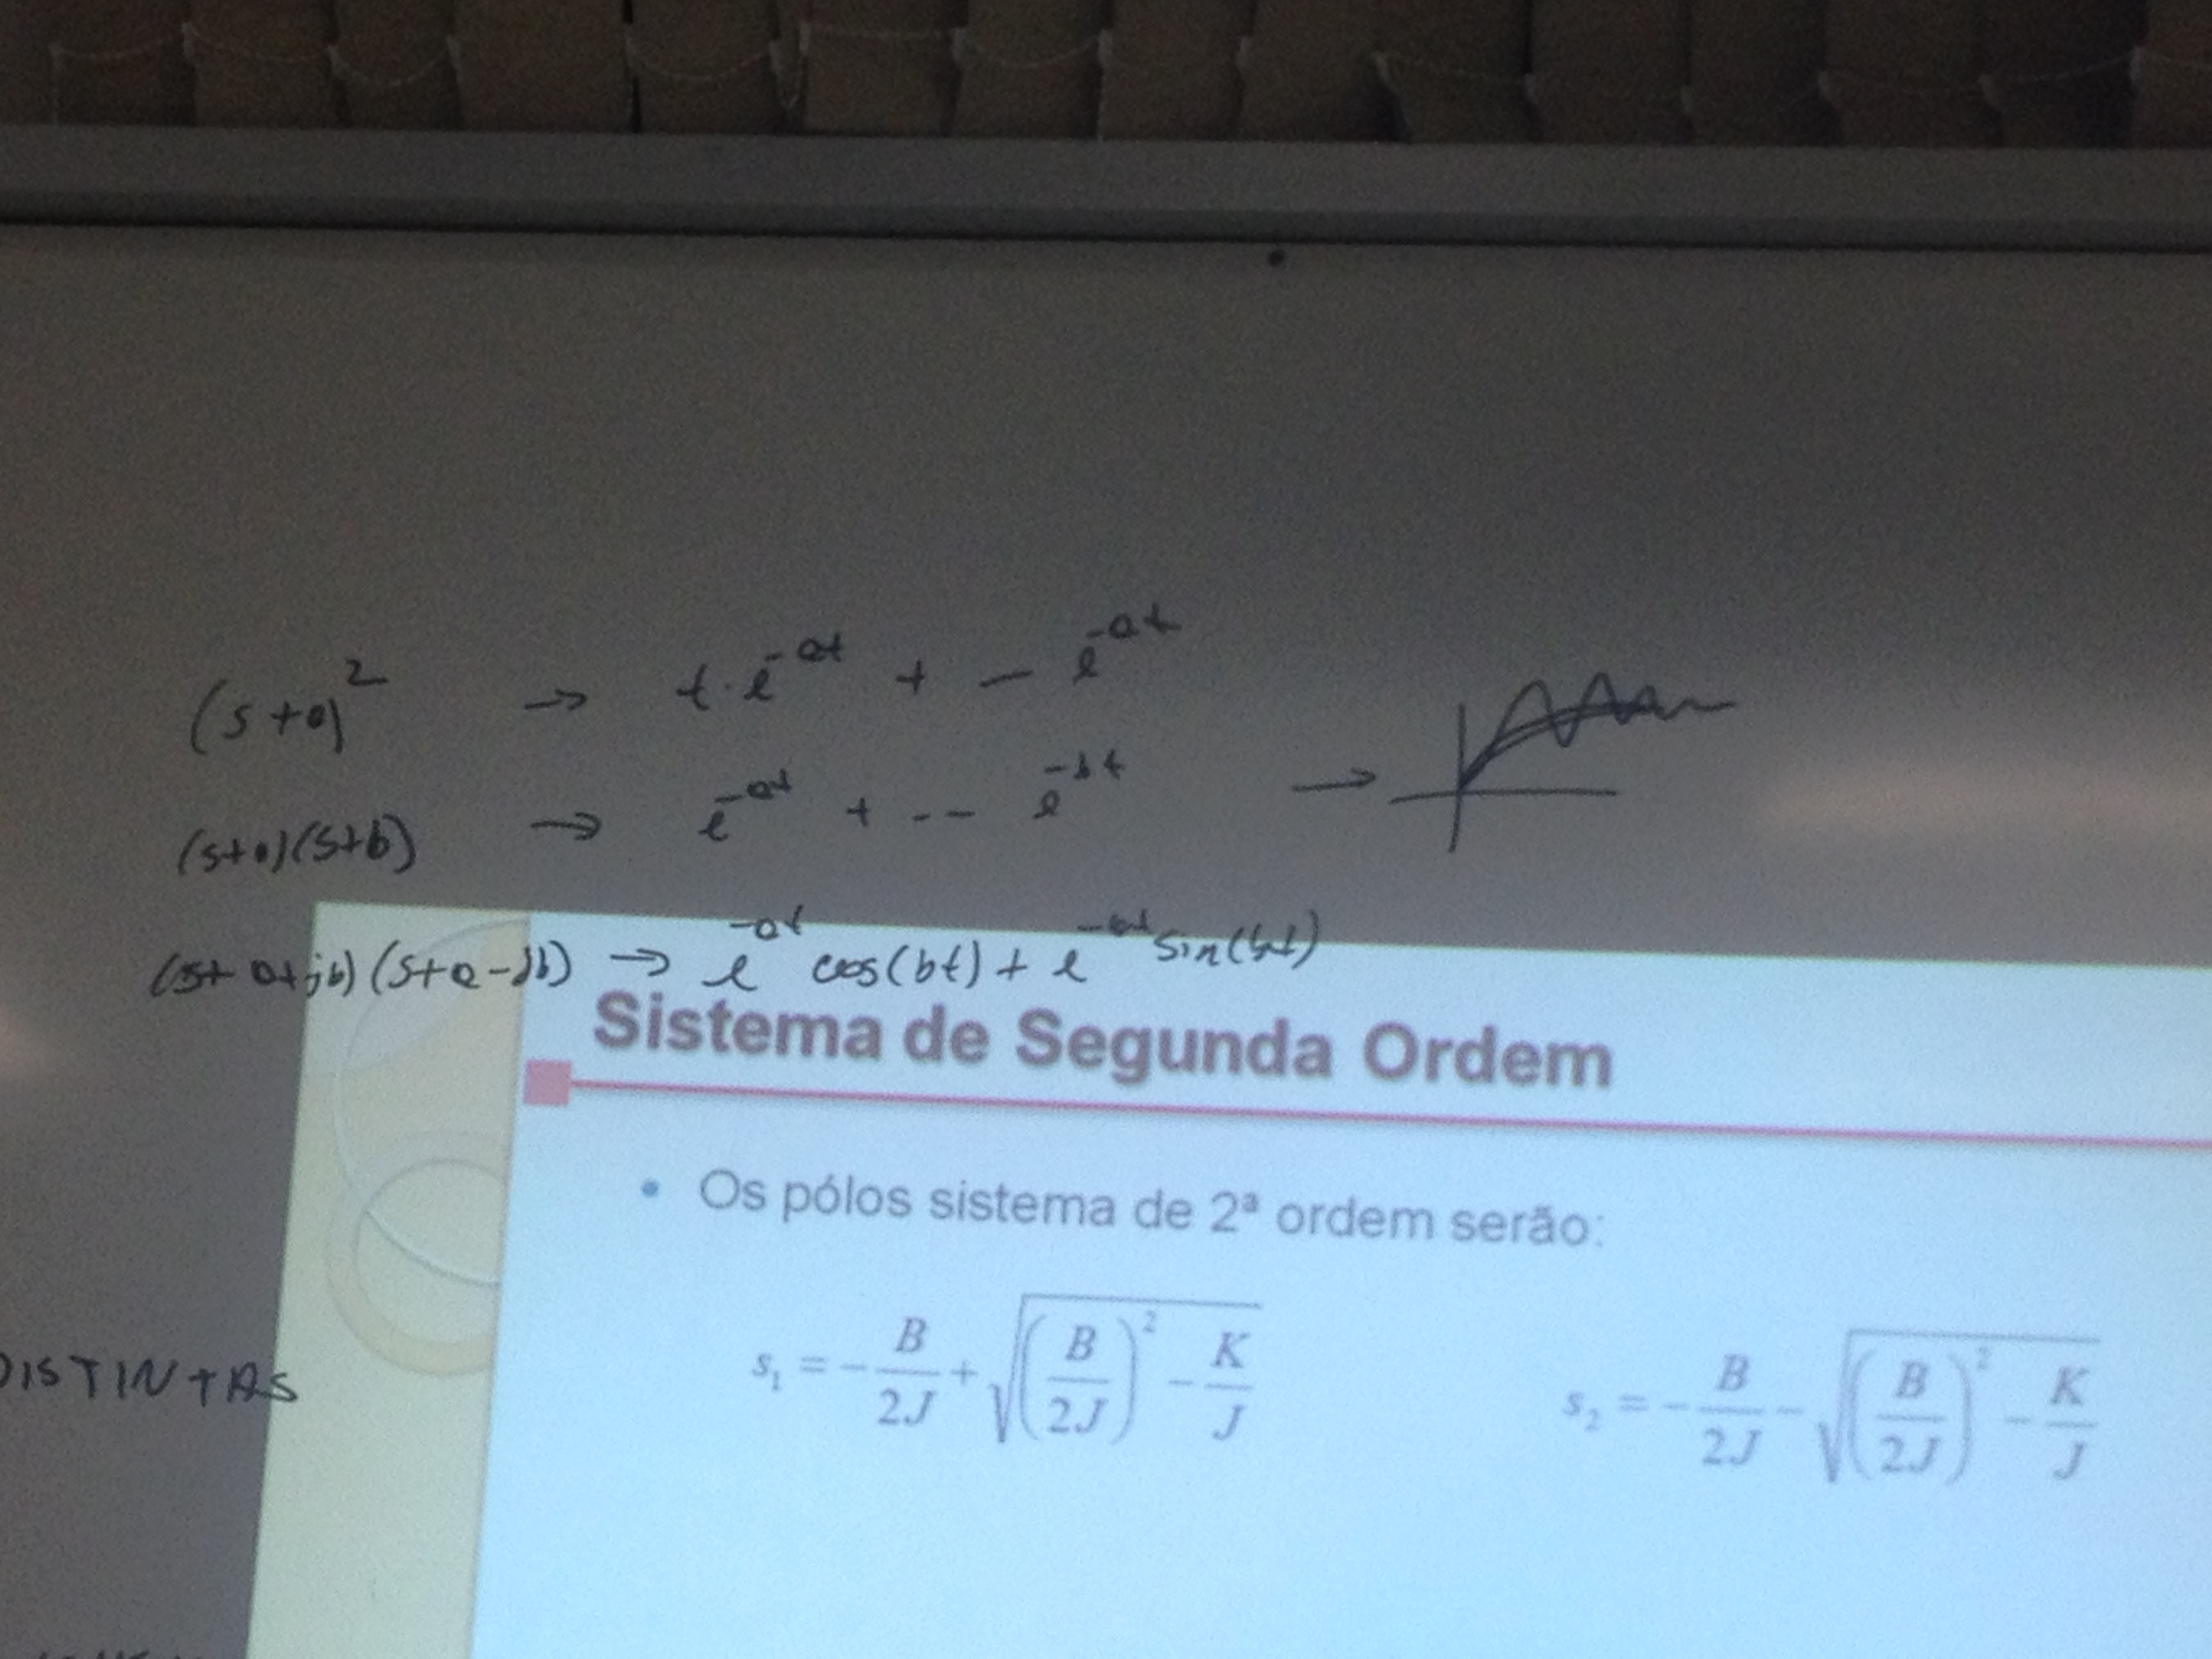 (s+a)² → t·e^-at + — e^-at
(s+a)(s+b) → e^-at + -- e^-bt →
(s+a+jb)(s+a-jb) → e^-at cos(bt) + e^-at sin(bt)
Sistema de Segunda Ordem
• Os pólos sistema de 2ª ordem serão:
s₁ = -B/2J + √((B/2J)² - K/J) s₂ = -B/2J - √((B/2J)² - K/J)
DISTINTAS